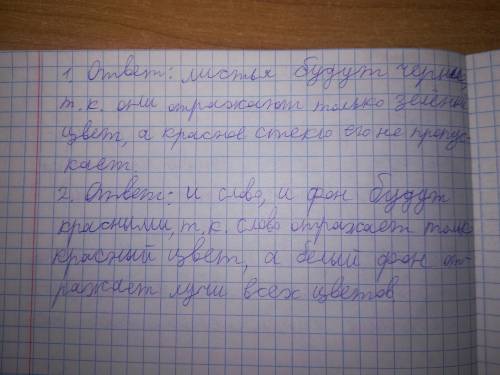 1. Ответ: листья будут черны,
т.к. они отражают только зелёный
цвет, а красное стекло его не пропус-
кает.
2. Ответ: и слово, и фон будут
красными, т.к. слово отражает только
красный цвет, а белый фон от-
ражает лучи всех цветов